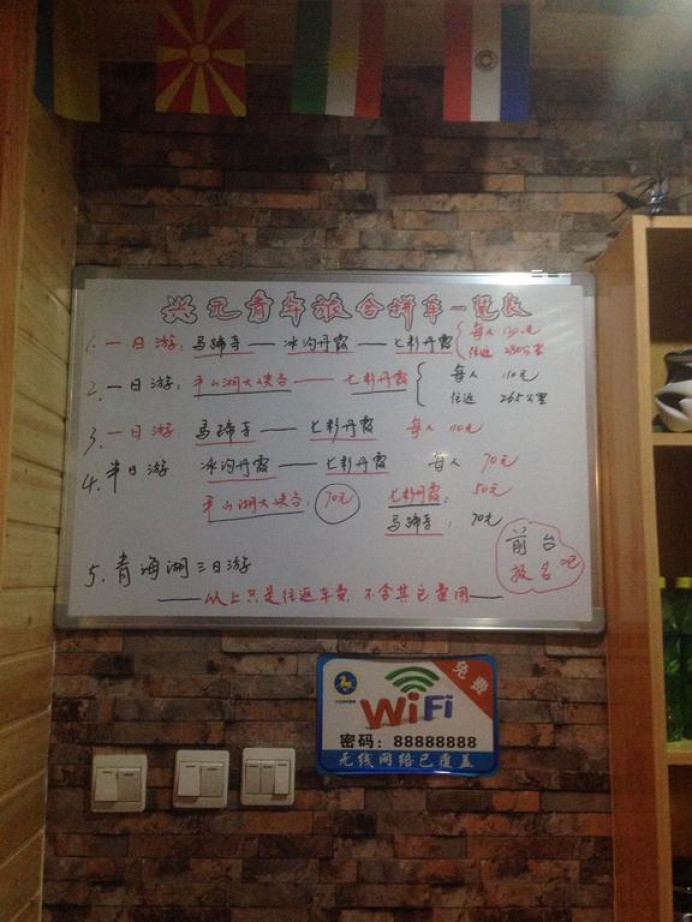 兴元青年旅舍拼车一览表
1. 一日游: 马蹄寺 — 冰沟丹霞 — 七彩丹霞 { 每人 130元
往返 280公里
2. 一日游: 平山湖大峡谷 — 七彩丹霞 { 每人 110元
往返 265公里
3. 一日游: 马蹄寺 — 七彩丹霞 每人 110元
4. 半日游 冰沟丹霞 — 七彩丹霞 每人 70元
平山湖大峡谷: 70元 七彩丹霞: 50元
马蹄寺: 70元
前台
报名吧
5. 青海湖三日游
——以上只是往返车费 不含其它费用——
免费
WiFi
密码: 88888888
无线网络已覆盖